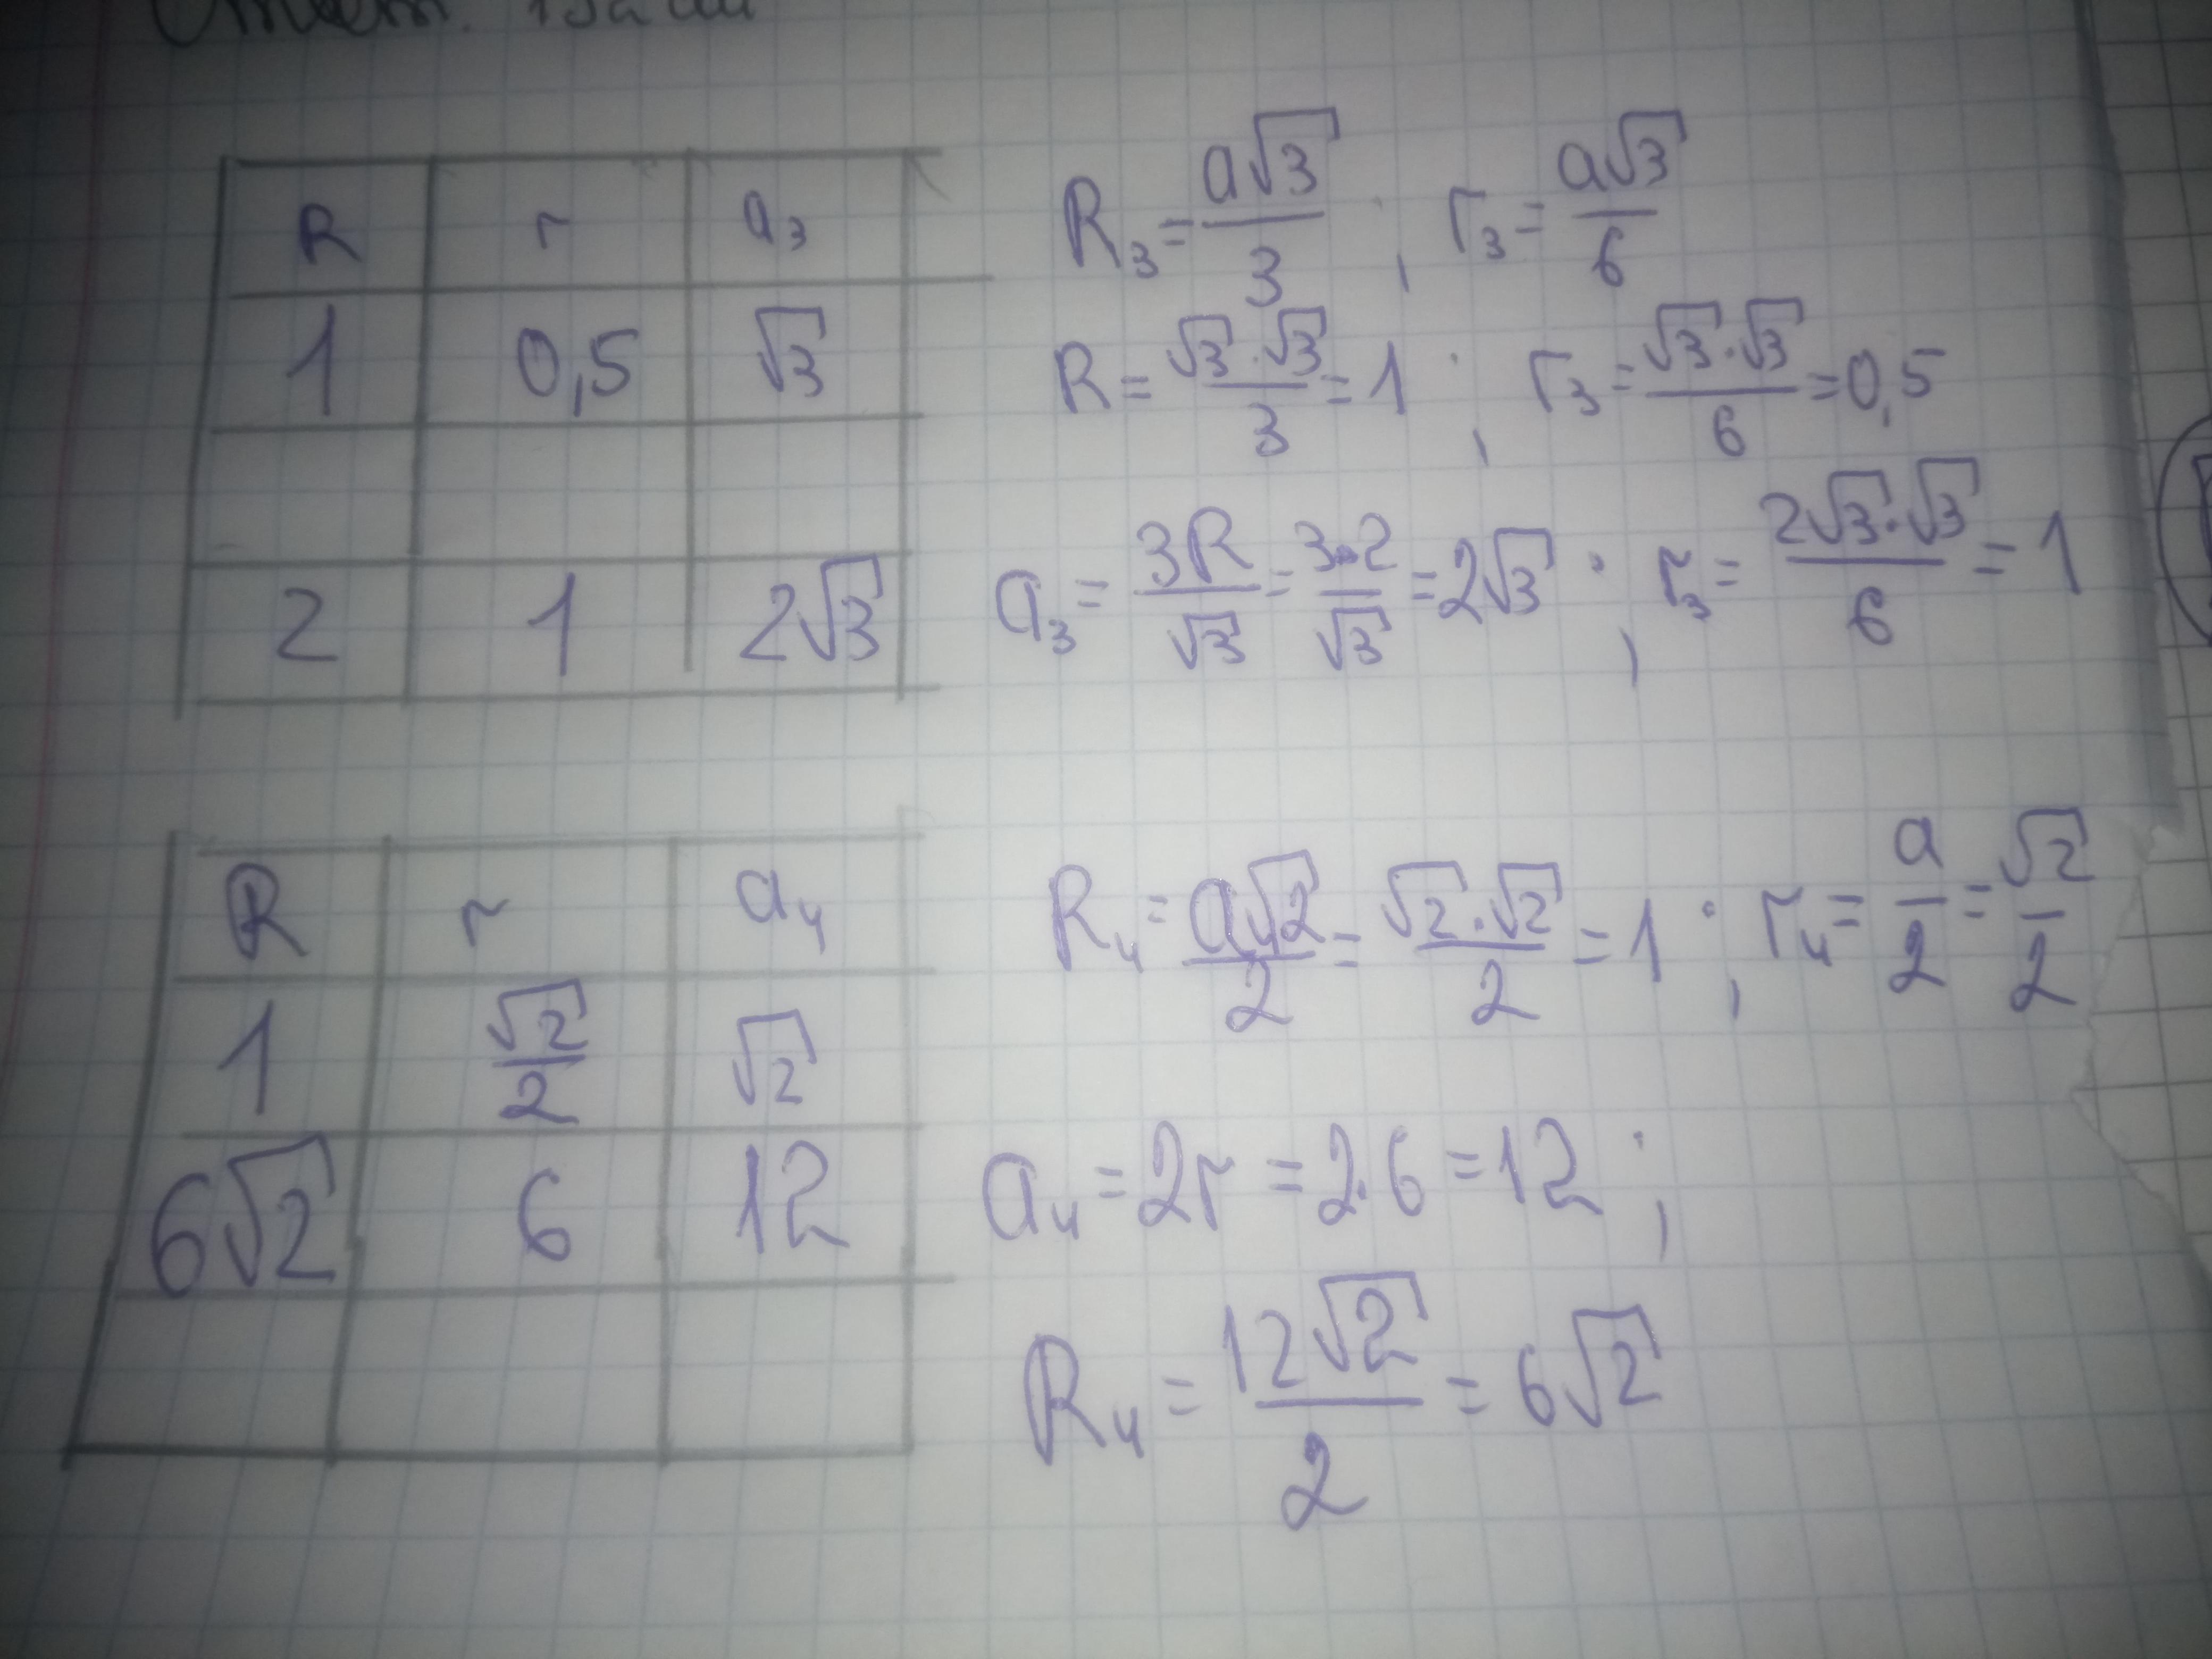 Ответ:
R r a₃
1 0,5 √3
2 1 2√3
R₃ = a√3/3 ; r₃ = a√3/6
R = √3·√3/3 = 1 ; r₃ = √3·√3/6 = 0,5
a₃ = 3R/√3 = 3·2/√3 = 2√3 ; r₃ = 2√3·√3/6 = 1
R r a₄
1 √2/2 √2
6√2 6 12
R₄ = a√2/2 = √2·√2/2 = 1 ; r₄ = a/2 = √2/2
a₄ = 2r = 2·6 = 12 ;
R₄ = 12√2/2 = 6√2